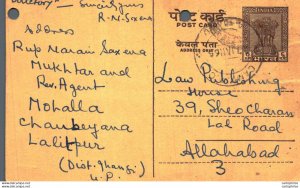 R.N. Saxena
Address
Rup Narain Saxena
Mukhtar and
Rev. Agent
Mohalla
Chaubeyana
Lalitpur
(Dist. Jhansi)
U.P.
पोस्ट कार्ड
POST CARD
केवल पता
ADDRESS ONLY
Law Publishing
House
39, Sheo Charan
Lal Road
Allahabad
3